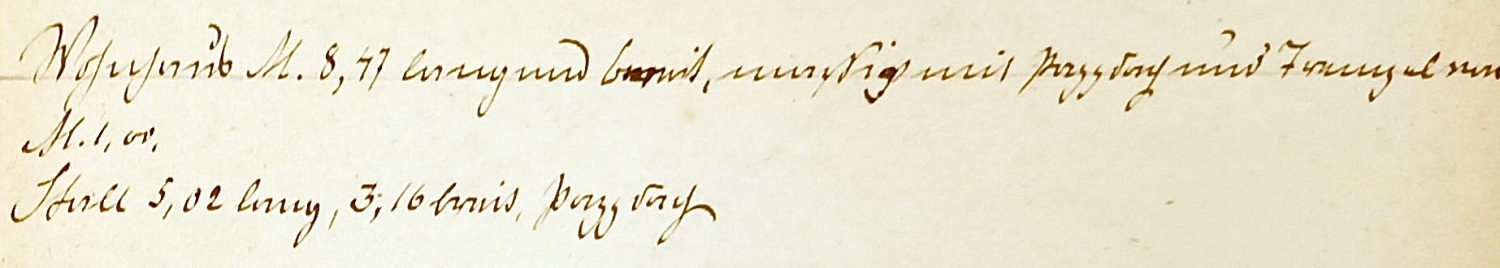 Wohnhaus M. 8,47 lang und breit, massig mit Pappdach und Trempel von
M. 1,00.
Stall 5,02 lang, 3,16 breit, Pappdach